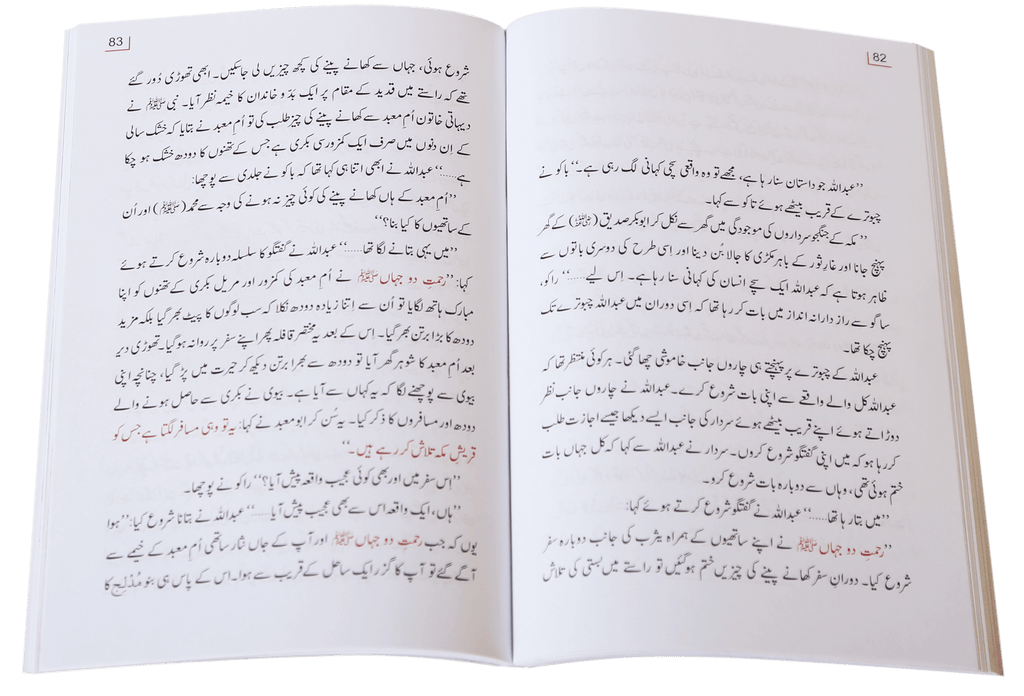 82
’’عبداللہ جو داستان سنا رہا ہے، مجھے تو وہ واقعی سچی کہانی لگ رہی ہے۔‘‘ باکو نے
چبوترے کے قریب بیٹھے ہوئے تاکو سے کہا۔
’’مکہ کے جنگجو سرداروں کی موجودگی میں گھر سے نکل کر ابوبکر صدیق (رضی اللہ عنہ) کے گھر
پہنچ جانا اور غارِ ثور کے باہر مکڑی کا جالا بُن دینا اور اسی طرح کی دوسری باتوں سے
ظاہر ہوتا ہے کہ عبداللہ ایک سچے انسان کی کہانی سنا رہا ہے۔ اِس لیے……‘‘ راکو،
ساگو سے راز دارانہ انداز میں بات کر رہا تھا کہ اِسی دوران میں عبداللہ چبوترے تک
پہنچ چکا تھا۔
عبداللہ کے چبوترے پر پہنچتے ہی چاروں جانب خاموشی چھا گئی۔ ہر کوئی منتظر تھا کہ
عبداللہ کل والے واقعے سے اپنی بات شروع کرے۔ عبداللہ نے چاروں جانب نظر
دوڑاتے ہوئے اپنے قریب بیٹھے ہوئے سردار کی جانب ایسے دیکھا جیسے اجازت طلب
کر رہا ہو کہ میں اپنی گفتگو شروع کروں۔ سردار نے عبداللہ سے کہا کہ کل جہاں بات
ختم ہوئی تھی، وہاں سے دوبارہ بات شروع کرو۔
’’میں بتا رہا تھا……‘‘ عبداللہ نے گفتگو شروع کرتے ہوئے کہا:
’’رحمتِ دو جہاں ﷺ نے اپنے ساتھیوں کے ہمراہ یثرب کی جانب دوبارہ سفر
شروع کیا۔ دورانِ سفر کھانے پینے کی چیزیں ختم ہو گئیں تو راستے میں بستی کی تلاش
83
شروع ہوئی، جہاں سے کھانے پینے کی کچھ چیزیں لی جاسکیں۔ ابھی تھوڑی دُور گئے
تھے کہ راستے میں قدید کے مقام پر ایک بدّو خاندان کا خیمہ نظر آیا۔ نبی ﷺ نے
دیہاتی خاتون اُمِ معبد سے کھانے پینے کی چیز طلب کی تو اُم معبد نے بتایا کہ خشک سالی
کے اِن دنوں میں صرف ایک کمزور سی بکری ہے جس کے تھنوں کا دودھ خشک ہو چکا
ہے……‘‘ عبداللہ نے ابھی اتنا ہی کہا تھا کہ باکو نے جلدی سے پوچھا:
’’اُم معبد کے ہاں کھانے پینے کی کوئی چیز نہ ہونے کی وجہ سے محمد (ﷺ) اور اُن
کے ساتھیوں کا کیا بنا؟‘‘
’’میں یہی بتانے لگا تھا……‘‘ عبداللہ نے گفتگو کا سلسلہ دوبارہ شروع کرتے ہوئے
کہا: ’’رحمتِ دو جہاں ﷺ نے اُم معبد کی کمزور اور مریل بکری کے تھنوں کو اپنا
مبارک ہاتھ لگایا تو اُن سے اِتنا زیادہ دودھ نکلا کہ سب لوگوں کا پیٹ بھر گیا بلکہ مزید
دودھ کا بڑا برتن بھر گیا۔ اِس کے بعد یہ مختصر قافلہ پھر اپنے سفر پر روانہ ہو گیا۔ تھوڑی دیر
بعد اُم معبد کا شوہر گھر آیا تو دودھ سے بھرا برتن دیکھ کر حیرت میں پڑ گیا، چنانچہ اپنی
بیوی سے پوچھنے لگا کہ یہ کہاں سے آیا ہے۔ بیوی نے بکری سے حاصل ہونے والے
دودھ اور مسافروں کا ذکر کیا۔ یہ سُن کر ابو معبد نے کہا: یہ تو وہی مسافر لگتا ہے جس کو
قریشِ مکہ تلاش کر رہے ہیں۔‘‘
’’اِس سفر میں اور بھی کوئی عجیب واقعہ پیش آیا؟‘‘ راکو نے پوچھا۔
’’ہاں، ایک واقعہ اس سے بھی عجیب پیش آیا……‘‘ عبداللہ نے بتانا شروع کیا: ’’ہوا
یوں کہ جب رحمتِ دو جہاں ﷺ اور آپ کے جاں نثار ساتھی اُم معبد کے خیمے سے
آگے گئے تو آپ کا گزر ایک ساحل کے قریب سے ہوا۔ اس کے پاس ہی بنو مُدْلِج کا